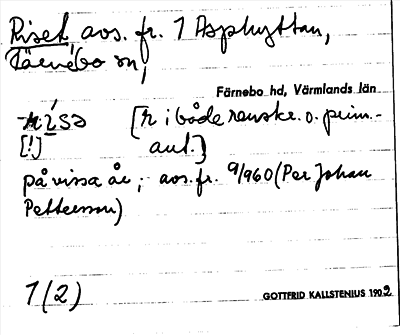 Riset avs. fr. 1 Asphyttan,
Färnebo sn,
Färnebo hd, Värmlands län
[r i både renskr. o. prim.-
[!] ant.]
på vissa år; avs. fr. 9/960 (Per Johan
Petterson)
1(2)
GOTTFRID KALLSTENIUS 1902